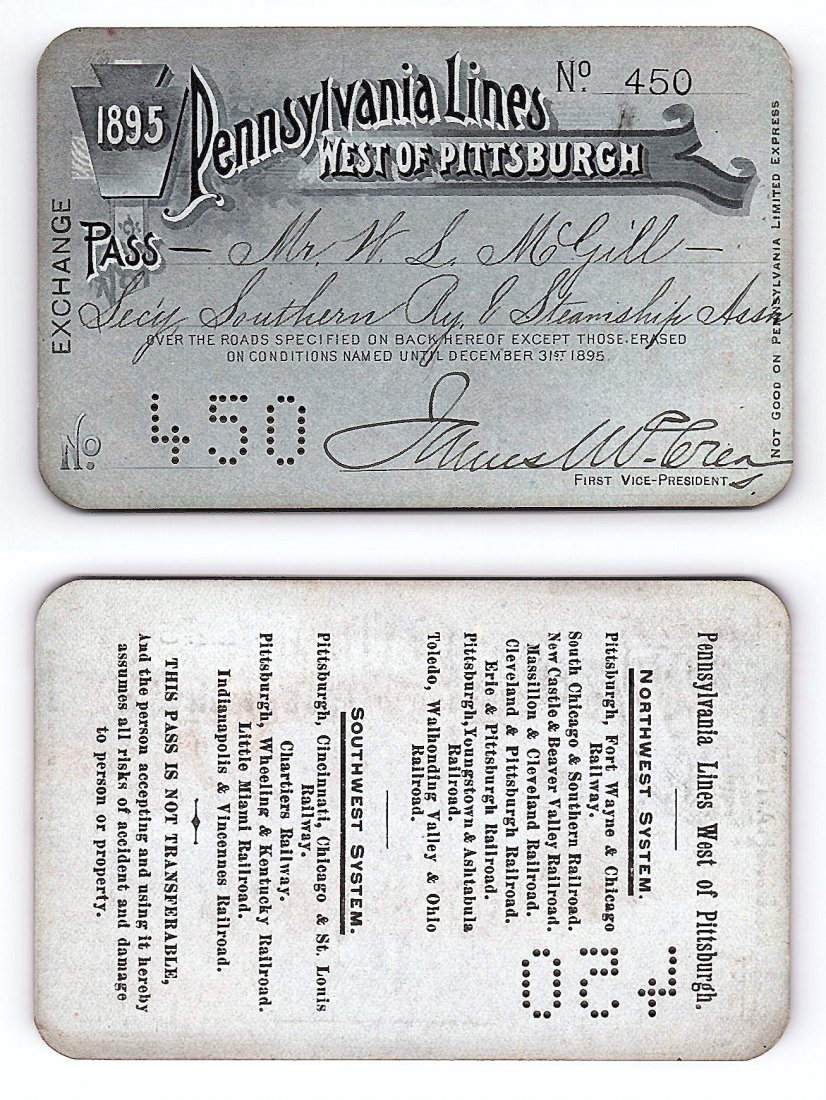 1895
Pennsylvania Lines
No. 450
WEST OF PITTSBURGH
EXCHANGE
PASS — Mr. W. L. McGill —
Secy Southern Ry. & Steamship Assn
OVER THE ROADS SPECIFIED ON BACK HEREOF EXCEPT THOSE ERASED
ON CONDITIONS NAMED UNTIL DECEMBER 31ST 1895.
No. 450
James McCrea
FIRST VICE-PRESIDENT
NOT GOOD ON PENNSYLVANIA LIMITED EXPRESS
Pennsylvania Lines West of Pittsburgh.
NORTHWEST SYSTEM.
Pittsburgh, Fort Wayne & Chicago
Railway.
South Chicago & Southern Railroad.
New Castle & Beaver Valley Railroad.
Massillon & Cleveland Railroad.
Cleveland & Pittsburgh Railroad.
Erie & Pittsburgh Railroad.
Pittsburgh, Youngstown & Ashtabula
Railroad.
Toledo, Walhonding Valley & Ohio
Railroad.
SOUTHWEST SYSTEM.
Pittsburgh, Cincinnati, Chicago & St. Louis
Railway.
Chartiers Railway.
Pittsburgh, Wheeling & Kentucky Railroad.
Little Miami Railroad.
Indianapolis & Vincennes Railroad.
THIS PASS IS NOT TRANSFERABLE,
And the person accepting and using it hereby
assumes all risks of accident and damage
to person or property.
450